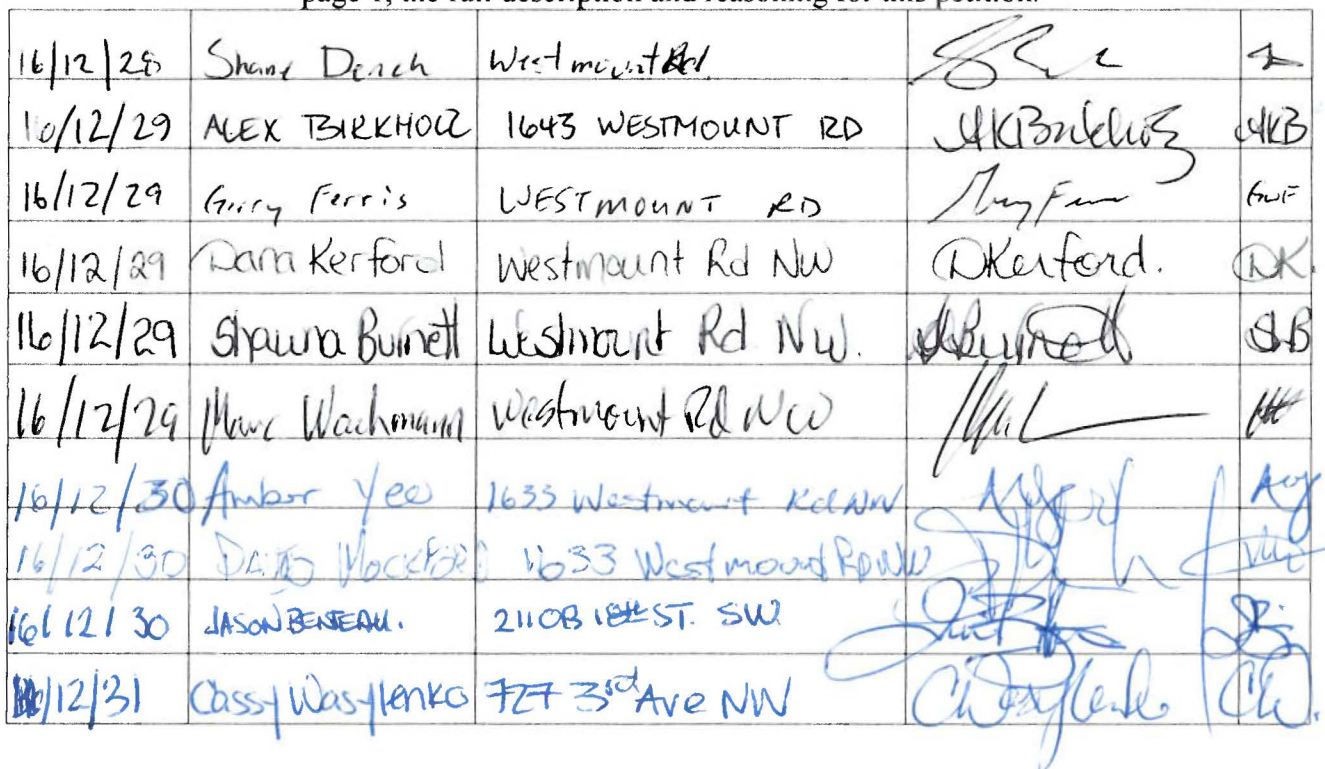 page 1, the full description and reasoning for this petition.
16/12/28 Shane Westmount Rd.
16/12/29 ALEX BIRKHOLZ 1643 WESTMOUNT RD AKBirkholz AKB
16/12/29 Ferris WESTMOUNT RD GWF
16/12/29 Dana Kerford Westmount Rd NW DKerford. DK.
16/12/29 Shawna Burnett Westmount Rd NW. SBurnett SB
16/12/29 Marc Wachmann Westmount Rd NW
16/12/30 Amber Yee 1633 Westmount Rd NW AY
16/12/30 1633 Westmount Rd NW
16/12/30 JASON BENEAU. 2110B 18th ST. SW.
16/12/31 Cassy Wasylenko 727 3rd Ave NW CWasylenko CW.